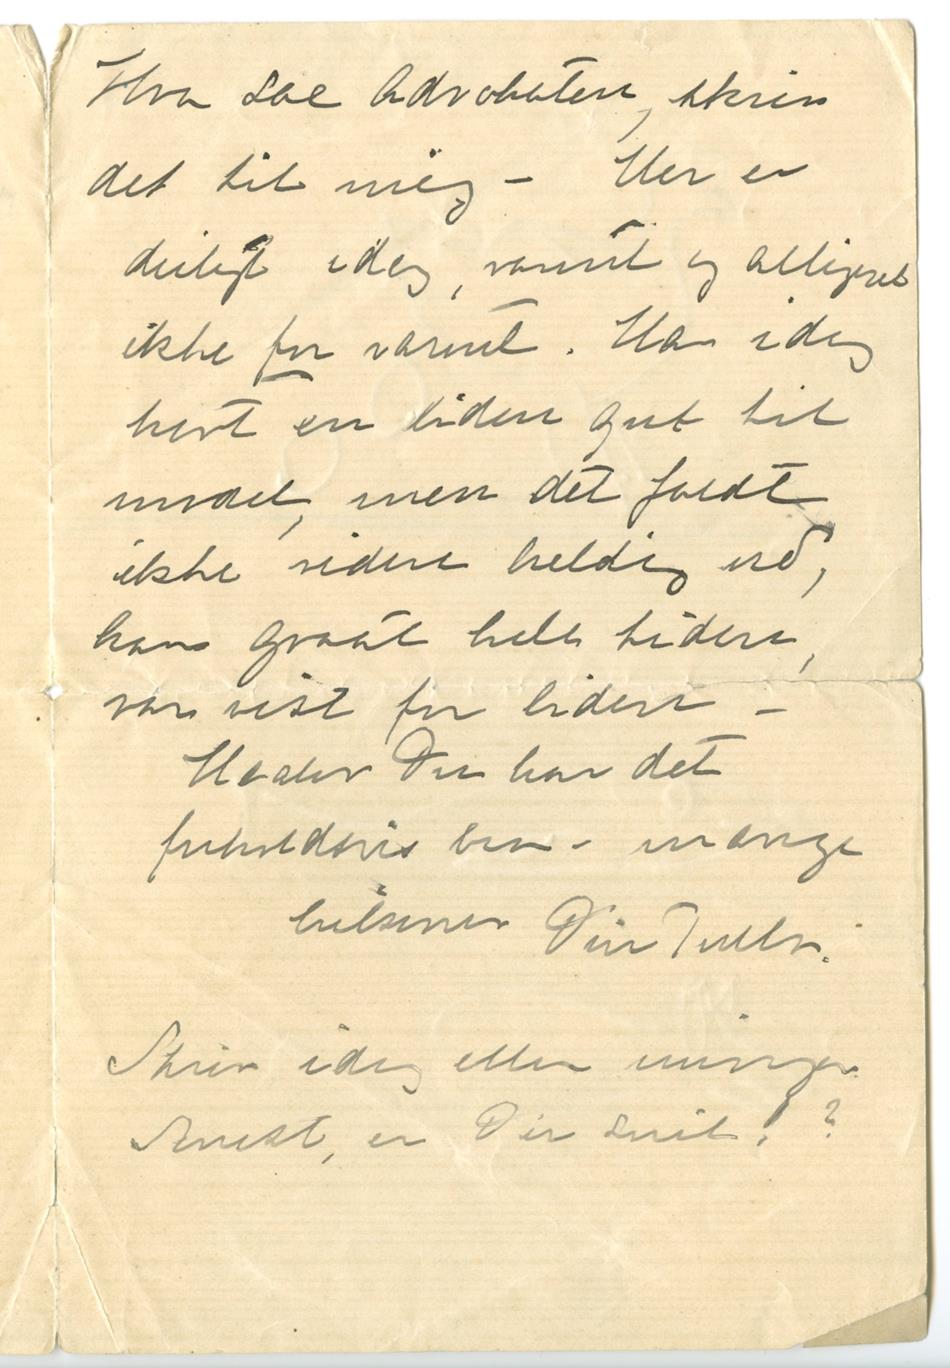 Hva sae Advokaten, skriv
det til mig – Her er
deiligt idag, varmt og alligevel
ikke for varmt. Har idag
havt en liden gut til
model, men det faldt
ikke videre heldig ud,
han graat hele tiden,
var vist for liden –
Haaber Du har det
forholdsvis bra – mange
hilsener Din Tulla.
Skriv idag eller imorgen
senest, er Du snil! ?